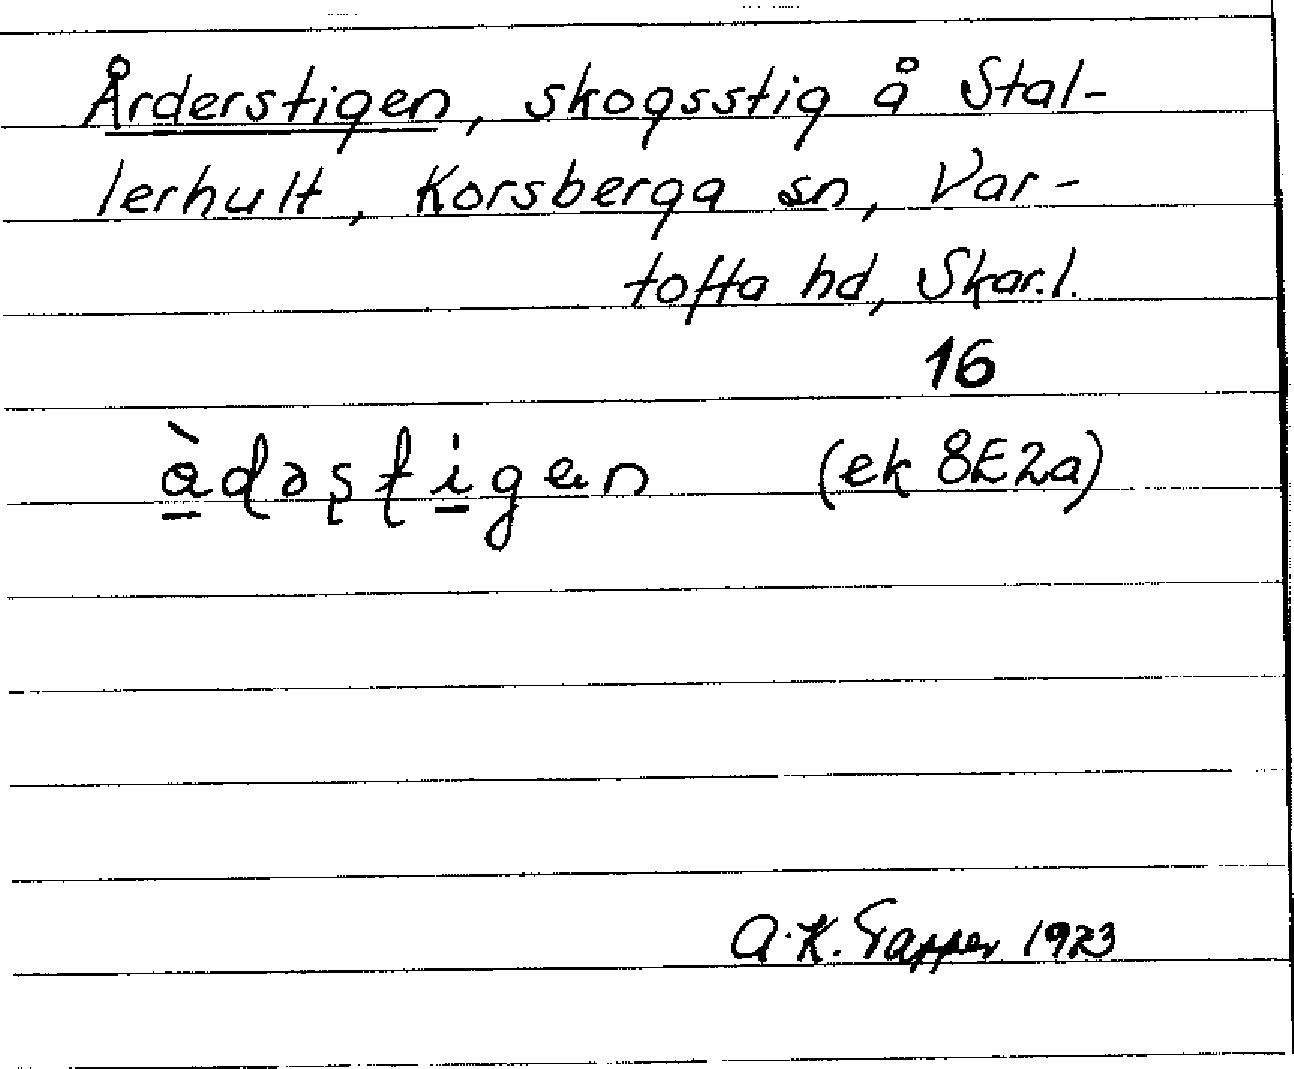 Årderstigen, skogsstig å Stal-
lerhult, Korsberga sn, Var-
tofta hd, Skar.l.
16
(ek 8E2a)
A.K. Tapper 1923